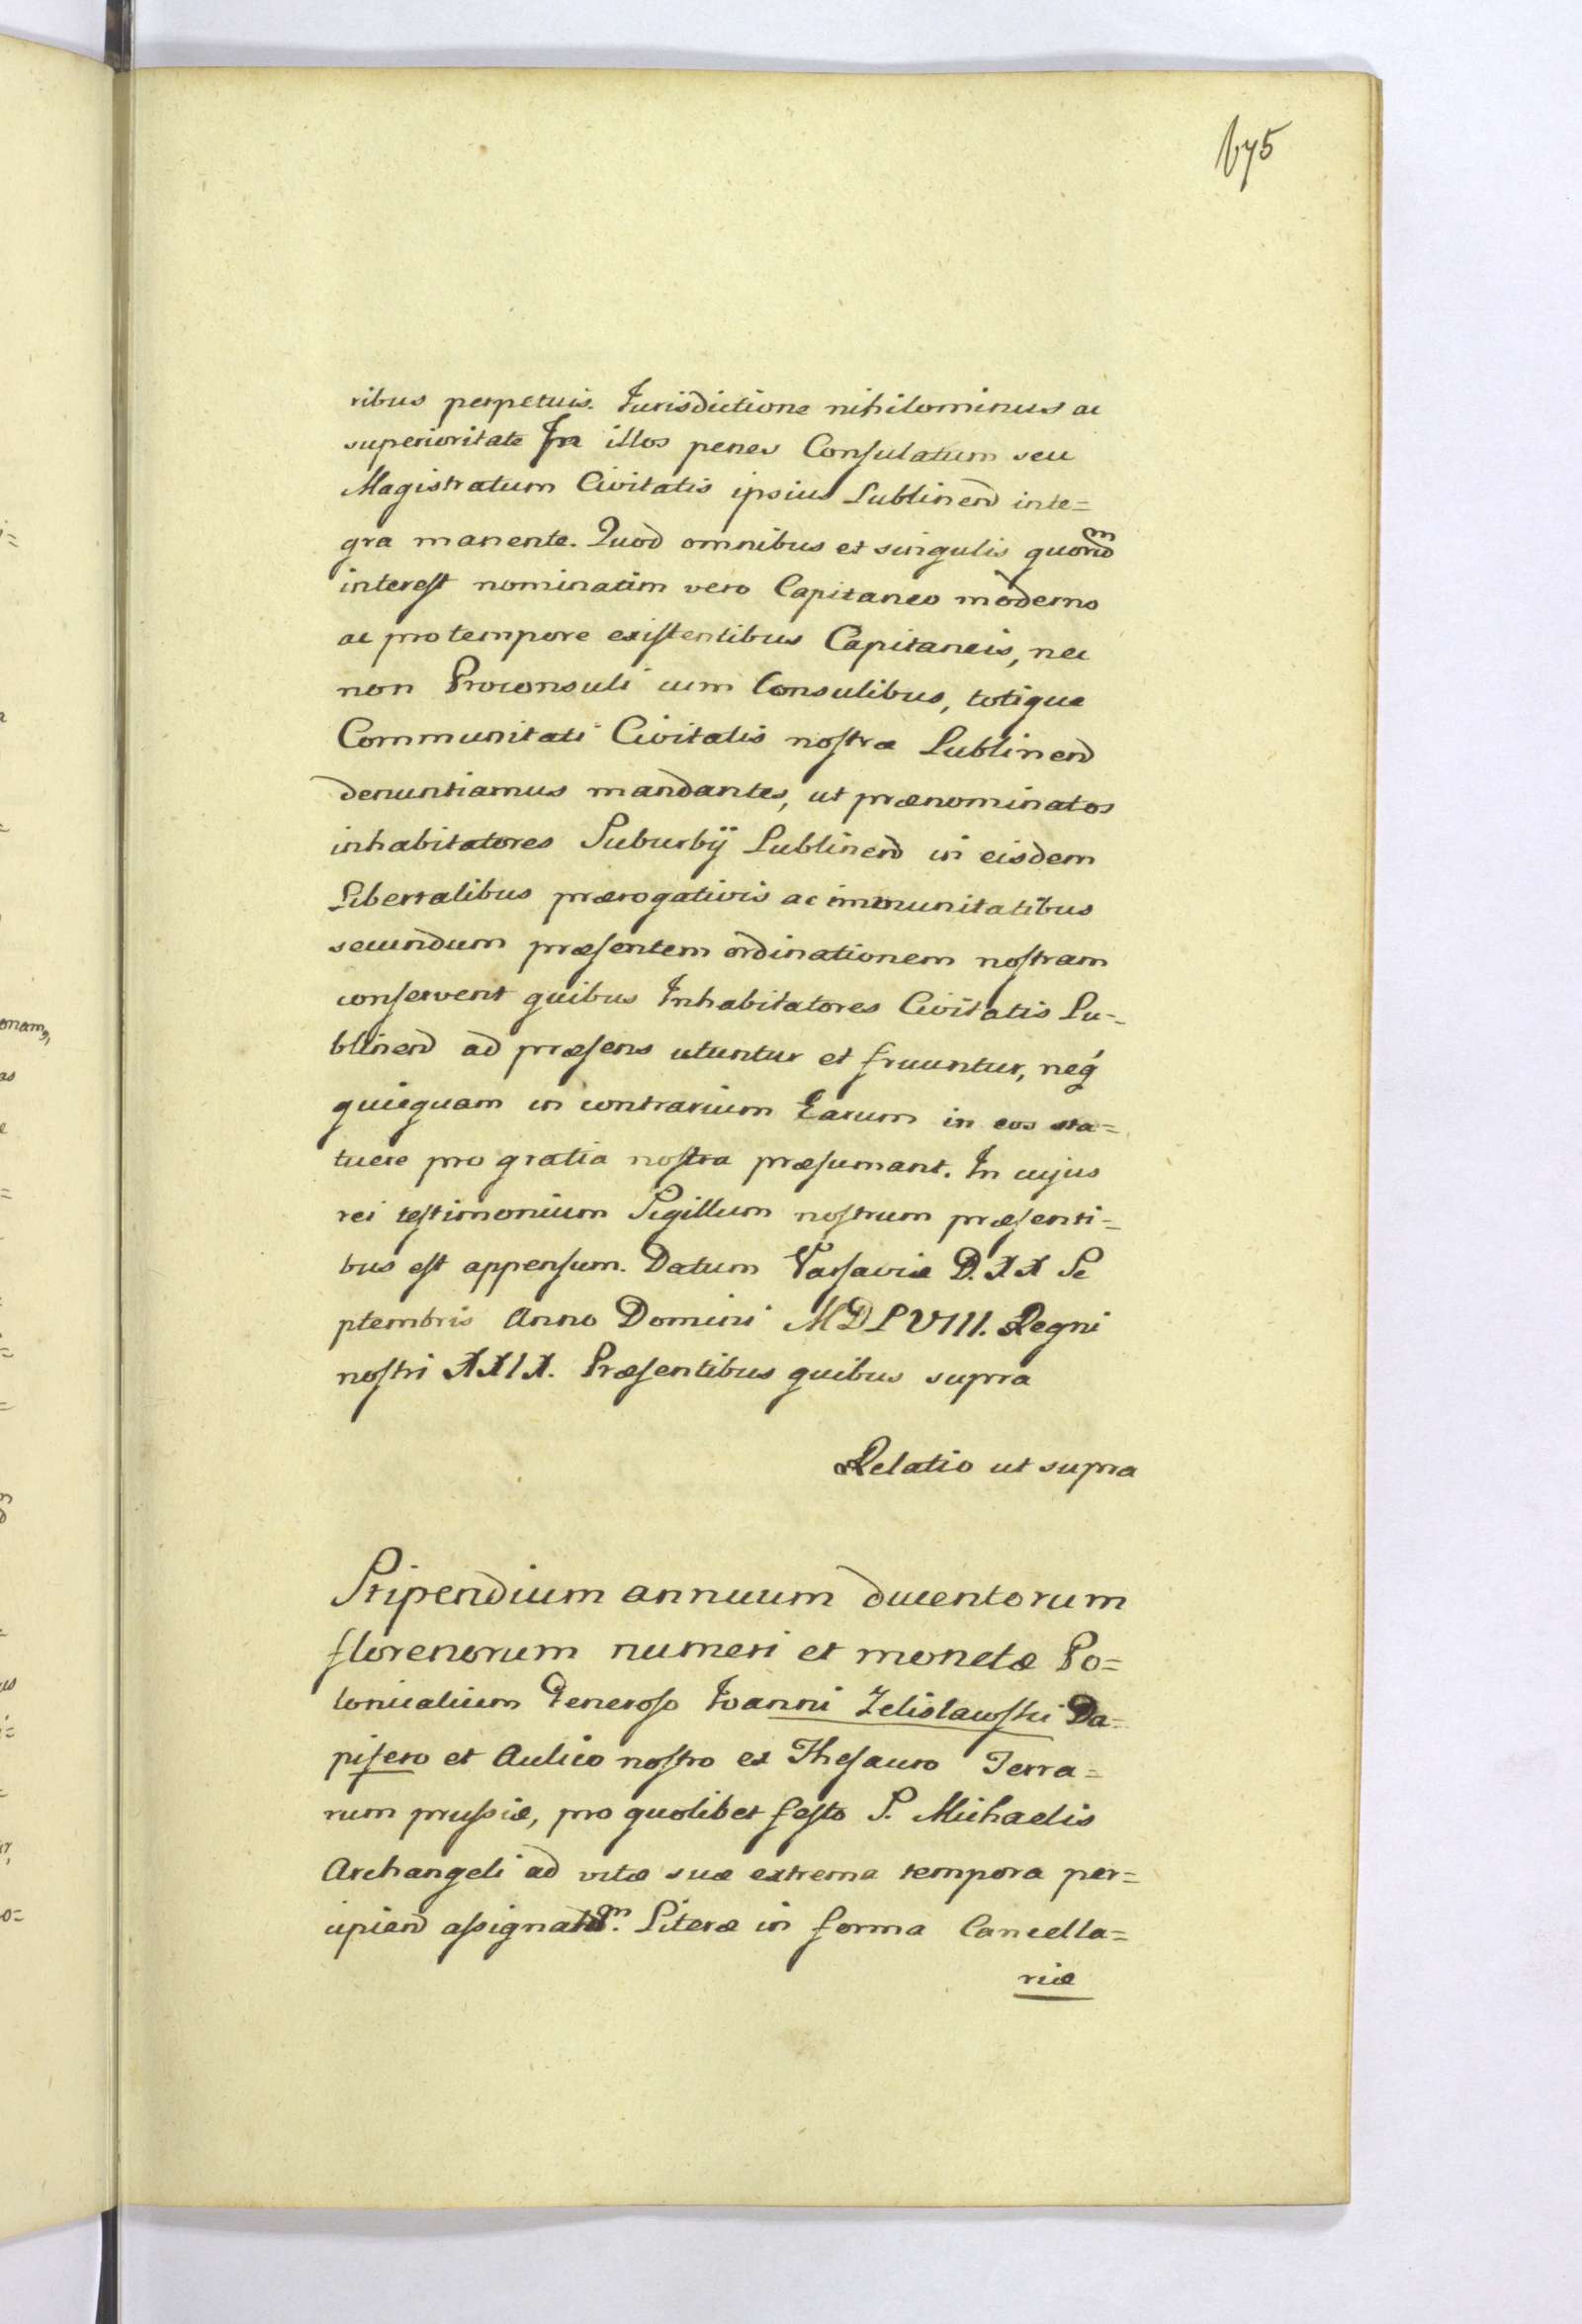 675
ribus perpetuis. Jurisdictione nihilominus ac
superioritate In illos penes Consulatum seu
Magistratum Civitatis ipsius Lublinen̄ inte=
gra manente. Quod omnibus et singulis quorum
interest nominatim vero Capitaneo moderno
ac pro tempore existentibus Capitaneis, nec
non Proconsuli cum Consulibus, totique
Communitati Civitatis nostræ Lublinen̄
denuntiamus mandantes, ut prænominatos
inhabitatores Suburbij Lublinen̄ in eisdem
Libertatibus prærogativis ac immunitatibus
secundum præsentem ordinationem nostram
conservent quibus Inhabitatores Civitatis Lu=
blinen̄ ad præsens utuntur et fruuntur, neq́
quicquam in contrarium Earum in eos sta=
tuere pro gratia nostra præsumant. In cujus
rei testimonium Sigillum nostrum præsenti=
bus est appensum. Datum Varsaviæ D. XX Se
ptembris Anno Domini MDLVIII. Regni
nostri XXIX. Præsentibus quibus supra
Relatio ut supra
Stipendium annuum ducentorum
florenorum numeri et monetæ Po=
lonicalium Generoso Joanni Zelislawski Da=
pifero et Aulico nostro ex Thesauro Terra=
rum prussiæ, pro quolibet festo S. Michaelis
Archangeli ad vitæ suæ extrema tempora per=
cipien̄ assignatum. Literæ in forma Cancella=
riæ